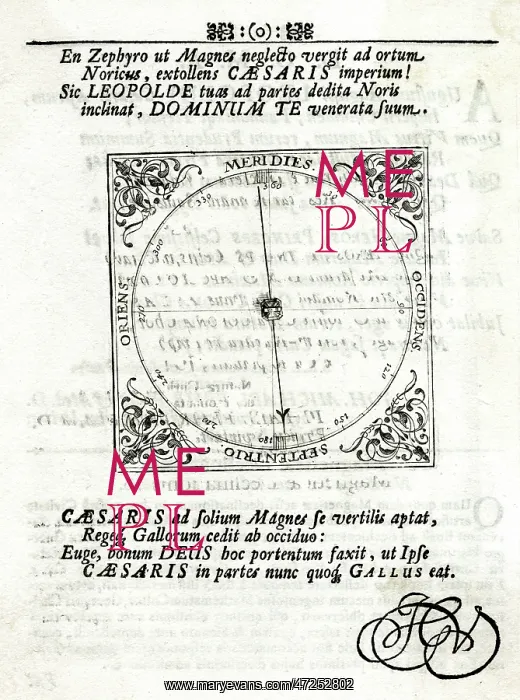 :(o):
En Zephyro ut Magnes neglecto vergit ad ortum
Noricus, extollens CÆSARIS imperium!
Sic LEOPOLDE tuas ad partes dedita Noris
inclinat, DOMINUM TE venerata suum.
MERIDIES
ME
PL
360
330
300
ORIENS
OCCIDENS
270
90
240
120
210
150
180
SEPTENTRIO
ME
PL
CÆSARIS ad solium Magnes se vertilis aptat,
Regeq́; Gallorum cedit ab occiduo:
Euge, bonum DEUS hoc portentum faxit, ut Ipse
CÆSARIS in partes nunc quoq́; GALLUS eat.
www.maryevans.com/47252802